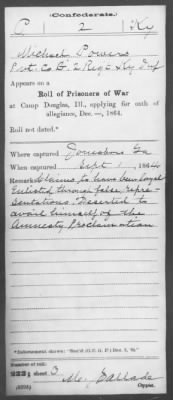 (Confederate.)
P 2 Ky
Michael Powers
Pvt. Co. G. 2 Reg't Ky Inf
Appears on a
Roll of Prisoners of War
at Camp Douglas, Ill., applying for oath of
allegiance, Dec. —, 1864.
Roll not dated.*
Where captured Jonesboro Ga
When captured Sept 1, 1864
Remarks: Claims to have been loyal
Enlisted through false repre-
sentations. Deserted to
avail himself of the
Amnesty Proclamation
*Indorsement shows: "Rec'd (C. G. P.) Dec.
Number of roll:
223; sheet 3
Copyist.